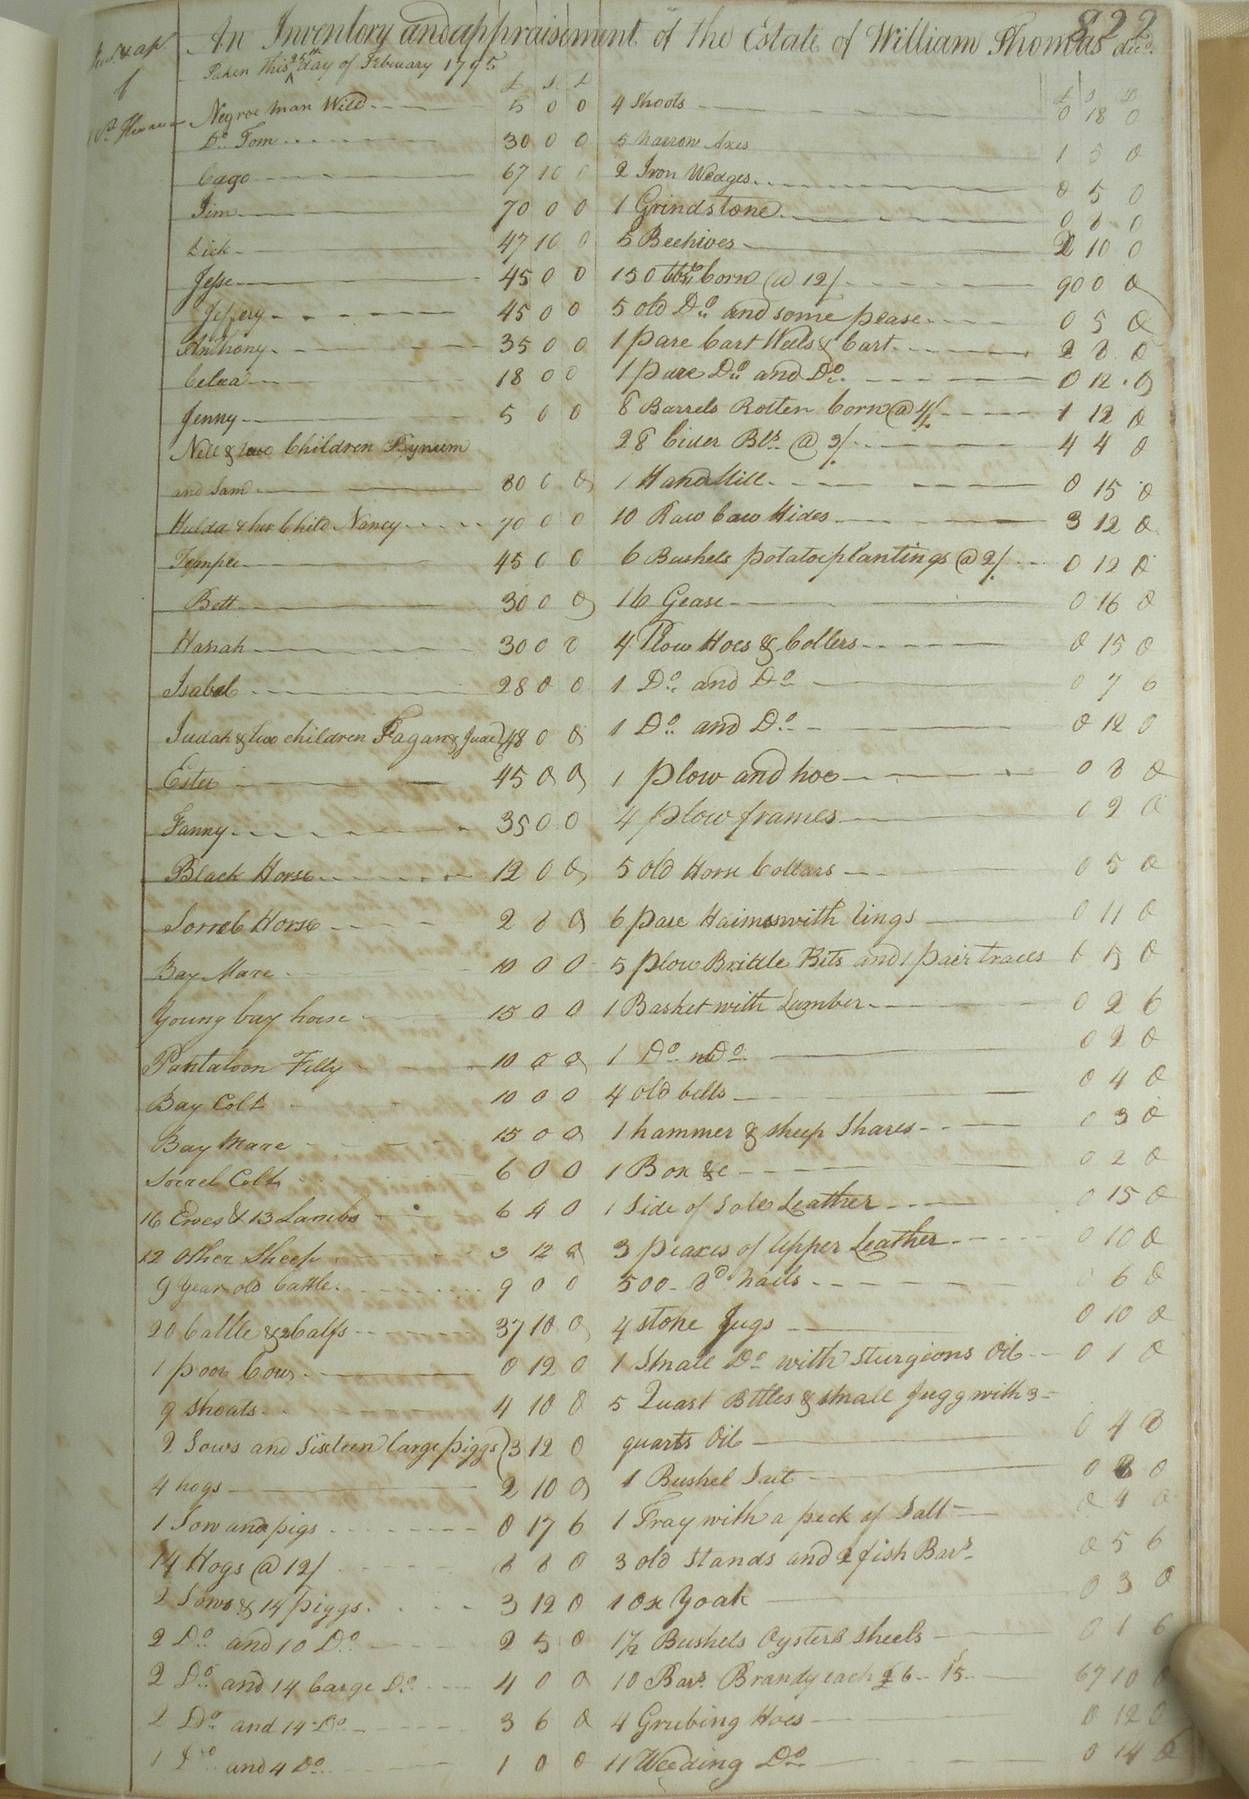 822
An Inventory and appraisement of the Estate of William Thomas decd.
Taken this 25th day of February 1795
Inv. & ap
of
Wm. Thomas
£ S D
Negroe man Will 5 0 0
Do. Tom 30 0 0
Cago 67 10 0
Jim 70 0 0
Dick 47 10 0
Jesse 45 0 0
Jeffery 45 0 0
Anthony 35 0 0
Celia 18 0 0
Jenny 5 0 0
Nell & two Children Bynum
and Sam 80 0 0
Hulda & her Child Nancy 70 0 0
Temple 45 0 0
Bett 30 0 0
Hanah 30 0 0
Isabel 28 0 0
Judah & two children Fagan & Jude 48 0 0
Ester 45 0 0
Fanny 35 0 0
Black Horse 12 0 0
Sorrel Horse 2 8 0
Bay Mare 10 0 0
Young bay horse 15 0 0
Pantaloon Filly 10 0 0
Bay Colt 10 0 0
Bay Mare 15 0 0
Sorrel Colt 6 0 0
16 Ewes & 13 Lambs 6 4 0
12 Other Sheep 3 12 0
9 Year old Cattle 9 0 0
20 Cattle & 2 Calfs 37 10 0
1 poor Cow 0 12 0
9 Shoats 4 10 0
2 Sows and Sixteen large piggs 3 12 0
4 hogs 2 10 0
1 Sow and pigs 0 17 6
14 Hogs @ 12/ 8 8 0
2 Sows & 14 piggs 3 12 0
2 Do. and 10 Do. 2 5 0
2 Do. and 14 large Do. 4 0 0
2 Do. and 14 Do. 3 6 0
1 Do. and 4 Do. 1 0 0
£ S D
4 Shoots 0 18 0
5 narrow Axes 1 5 0
2 Iron Wedges 0 5 0
1 Grindstone 0 8 0
5 Beehives 2 10 0
150 bbls Corn @ 12/ 90 0 0
5 old Do. and some pease 0 5 0
1 pare Cart Heels & Cart 2 8 0
1 pare Do. and Do. 0 12 0
8 Barrels Rotten Corn @ 4/ 1 12 0
28 Cider Bls. @ 3/ 4 4 0
1 Hand Mill 0 15 0
10 Raw Caw Hides 3 12 0
6 Bushels potatoe plantings @ 2/ 0 12 0
16 Gease 0 16 0
4 Plow Hoes & Collers 0 15 0
1 Do. and Do. 0 7 6
1 Do. and Do. 0 12 0
1 plow and hoe 0 8 0
4 plow frames 0 2 0
5 old Horse Collars 0 5 0
6 pare Haims with lings 0 11 0
5 plow Briddle Bits and 1 pair traces 15 0
1 Basket with Lumber 0 2 6
1 Do. Do. 0 2 0
4 old bells 0 4 0
1 hammer & sheep Shares 0 3 0
1 Box &c 0 2 0
1 Side of Sole Leather 0 15 0
3 peaxes of Upper Leather 0 10 0
500 8d. nails 6 0
4 stone Jugs 0 10 0
1 Small Do. with Sturgions Oil 0 1 0
5 Quart Bttles & small Jugg with 3
quarts Oil 0 4 8
1 Bushel Salt 0 8 0
1 Tray with a peck of Salt 0 4 0
3 old Stands and 2 fish Bars. 0 5 6
1 Ox Yoak 0 3 0
1 1/2 Bushels Oysters Shells 0 1 6
10 Bars. Brandy each £6 15 67 10 0
4 Grubing Hoes 0 12 0
11 Weeding Do. 0 14 6